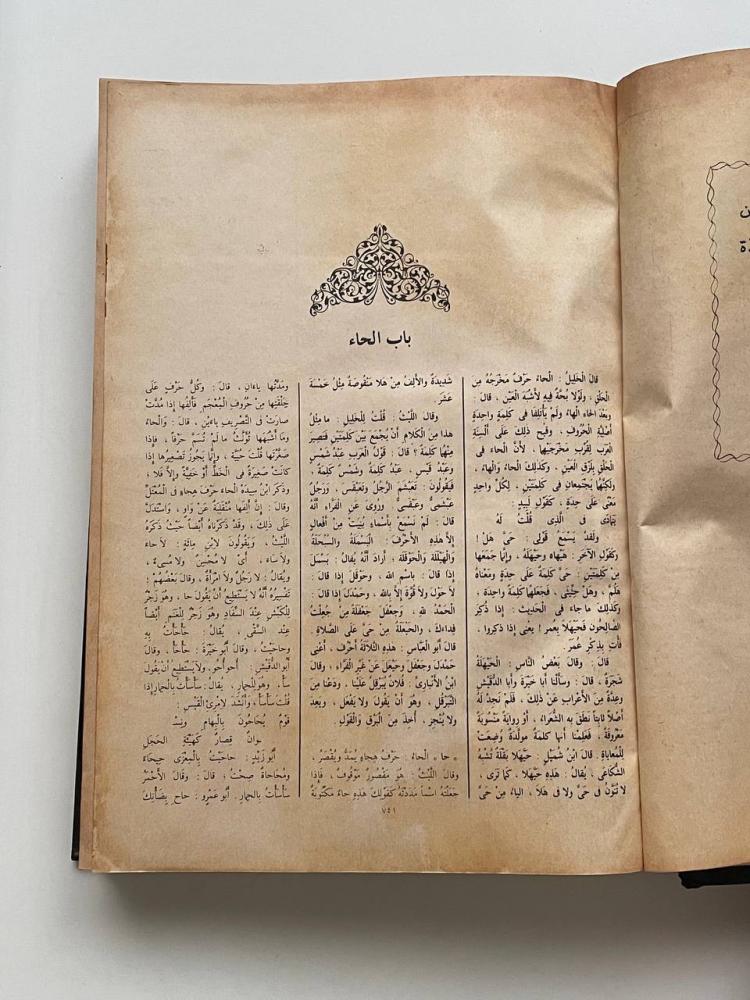 باب الحاء
قالَ الخَلِيلُ : الْحَاءُ حَرْفٌ مَخْرَجُهُ مِنَ
الْحَلْقِ ، وَلَوْلا بُحَّةٌ فِيهِ لأَشْبَهَ الْعَيْنَ ، قالَ :
وبَعْدَ الحَاءِ الْهاءُ وَلَمْ يَأْتَلِفا فِى كَلِمَةٍ واحِدَةٍ
أَصْلِيَّةِ الْحُرُوفِ ، وقَبُحَ ذلِكَ عَلَى أَلْسِنَةِ
الْعَرَبِ لِقُرْبِ مَخْرَجَيْهِما ، لأَنَّ الْحاءَ فِى
الْحَلْقِ بِلَزْقِ الْعَيْنِ ، وَكَذلِكَ الْحَاءُ والْهاءُ ،
ولكِنَّهُما يَجْتَمِعانِ فِى كَلِمَتَيْنِ ، لِكُلِّ واحِدٍ
مَعْنًى عَلَى حِدَةٍ ، كَقَوْلِ لَبِيدٍ :
يَتَمَادَى فى الَّذِى قُلْتُ لَهُ
وَلَقَدْ يَسْمَعُ قَوْلِى : حَىَّ هَلْ !
وكَقَوْلِ الآخَرِ : هَيْهاهُ وحَيْهَلَهْ ، وإِنَّما جَمَعَها
مِنْ كَلِمَتَيْنِ : حَىَّ كَلِمَةٌ عَلَى حِدَةٍ ومَعْناهُ
هَلُمَّ ، وهَلْ حِثِّيثَى ، فَجَعَلَهُما كَلِمَةً واحِدَةً ،
وكَذلِكَ ما جاءَ فى الْحَدِيثِ : إِذا ذُكِرَ
الصَّالِحُونَ فَحَيْهَلاً بِعُمَرَ ! يعنِى إِذا ذكروا ،
فَأْتِ بِذِكْرِ عُمَرَ .
قالَ : وقالَ بَعْضُ النَّاسِ : الْحَيْهَلَةُ
شَجَرَةٌ ، قالَ : وسأَلْنا أَبا خَيْرَةَ وأَبا الدُّقَيْشِ
وعِدَّةً مِنَ الأَعْرابِ عَنْ ذلِكَ ، فَلَمْ نَجِدْ لَهُ
أَصْلاً ثابِتاً نَطَقَ بِهِ الشُّعَراءُ ، أَوْ رِوايَةً مَنْسُوبَةً
مَعْرُوفَةً ، فَعَلِمْنا أَنَّها كَلِمَةٌ مُولَّدَةٌ وُضِعَتْ
لِلْمُعاياةِ . قالَ ابْنُ شُمَيْلٍ : حَيَّهَلا بَقْلَةٌ تُشْبِهُ
الشُّكاعَى ، يُقالُ : هذِهِ حَيَّهَلا ، كَما تَرَى ،
لا تُنَوَّنُ فِى حَىَّ ولا فِى هَلَا ، الياءُ مِنْ حَىَّ
شَدِيدَةٌ والأَلِفُ مِنْ هَلا مَنْقُوصَةٌ مِثْلُ خَمْسَةَ
عَشَرَ .
وقالَ اللَّيْثُ : قُلْتُ لِلْخَلِيلِ : ما مِثْلُ
هذا مِنَ الْكَلامِ أَنْ يُجْمَعَ بَيْنَ كَلِمَتَيْنِ فَتَصِيرَ
مِنْهُما كَلِمَةٌ ؟ قالَ : قَوْلُ الْعَرَبِ عَبْدُ شَمْسٍ
وعَبْدُ قَيْسٍ ، عَبْدُ كَلِمَةٌ وشَمْسٌ كَلِمَةٌ ،
فَيَقُولُونَ : تَعَبْشَمَ الرَّجُلُ وتَعَبْقَسَ ، ورَجُلٌ
عَبْشَمِىٌّ وعَبْقَسِىٌّ . ورُوِىَ عَنِ الْفَرَّاءِ أَنَّهُ
قالَ : لَمْ نَسْمَعْ بِأَسْماءٍ بُنِيَتْ مِنْ أَفْعالٍ
إِلاَّ هذِهِ الأَحْرُفَ : الْبَسْمَلَةَ والسَّبْحَلَةَ
والْهَيْلَلَةَ والْحَوْقَلَةَ ؛ أَرادَ أَنَّهُ يُقالُ : بَسْمَلَ
إِذا قالَ : بِاسْمِ اللهِ ، وحَوْقَلَ إِذا قالَ :
لا حَوْلَ ولا قُوَّةَ إِلاَّ بِاللهِ ، وحَمْدَلَ إِذا قالَ :
الْحَمْدُ للهِ ، وجَعْفَلَ جَعْفَلَةً مِنْ جُعِلْتُ
فِداءَكَ ، والْحَيْعَلَةُ مِنْ حَىَّ عَلَى الصَّلاةِ .
قالَ أَبو الْعَبَّاسِ : هذِهِ الثَّلاثَةُ أَحْرُفٍ ، أَعْنِى
حَمْدَلَ وجَعْفَلَ وحَيْعَلَ عَنْ غَيْرِ الْفَرَّاءِ ؛ وقالَ
ابْنُ الأَنْبارِىِّ : فُلانٌ يُبَرْقِلُ عَلَيْنا ، ودَعْنا مِنَ
التَّبَرْقُلِ ، وهُوَ أَنْ يَقُولَ ولا يَفْعَلَ ، ويَعِدَ
ولا يُنْجِزَ ، أُخِذَ مِنَ الْبَرْقِ والْقَوْلِ .
* حا * الْحاءُ : حَرْفُ هِجاءٍ يُمَدُّ ويُقْصَرُ ،
وقالَ اللَّيْثُ : هُوَ مَقْصُورٌ مَوْقُوفٌ ، فَإِذا
جَعَلْتَهُ اسْماً مَدَدْتَهُ كَقَوْلِكَ هذِهِ حاءٌ مَكْتُوبَةٌ
ومَدَّتُها ياءانِ ، قالَ : وكُلُّ حَرْفٍ عَلَى
خِلْقَتِها مِنْ حُرُوفِ الْمُعْجَمِ فَأَلِفُها إِذا مُدَّتْ
صارَتْ فى التَّصْرِيفِ ياءَيْنِ ، قالَ : والْحَاءُ
وما أَشْبَهَها تُؤَنَّثُ ما لَمْ تُسَمَّ حَرْفاً ، فَإِذا
صَغَّرْتَها قُلْتَ حُيَيَّةٌ ، وإِنَّما يَجُوزُ تَصْغِيرُها إِذا
كانَتْ صَغِيرَةً فى الْخَطِّ أَوْ خَفِيَّةً وإِلاَّ فَلا ؛
وذَكَرَ ابْنُ سِيدَهْ الْحاءَ حَرْفَ هِجاءٍ فى الْمُعْتَلِّ
وقالَ : إِنَّ أَلِفَها مُنْقَلِبَةٌ عَنْ واوٍ ، واسْتَدَلَّ
عَلَى ذلِكَ ، وقَدْ ذَكَرْناهُ أَيْضاً حَيْثُ ذَكَرَهُ
اللَّيْثُ ، وَيَقُولُونَ لابْنِ مِائَةٍ : لا حاءَ
ولا ساءَ ، أَىْ لا مُحْسِنٌ ولا مُسِىءٌ ،
ويُقالُ : لا رَجُلٌ ولا امْرَأَةٌ ، وقالَ بَعْضُهُمْ :
تَفْسِيرُهُ أَنَّهُ لا يَسْتَطِيعُ أَنْ يَقُولَ حا ، وهُوَ زَجْرٌ
لِلْكَبْشِ عِنْدَ السِّفادِ وهُوَ زَجْرٌ لِلْغَنَمِ أَيْضاً
عِنْدَ السَّقْىِ ، يُقالُ : حَأْحَأْتُ بِهِ
وحاحَيْتُ ، وقالَ أَبُو خَيْرَةَ : حَأْحَأْ ، وقالَ
أَبو الدُّقَيْشِ : أُحو أُحو ، ولا يَسْتَطِيعُ أَنْ يَقُولَ
سَأْ ، وهُوَ لِلْحِمارِ ، يُقالُ : سَأْسَأْتُ بِالْحِمارِ إِذا
قُلْتَ سَأْسَأْ ، وأَنْشَدَ لامْرِئِ الْقَيْسِ :
قَوْمٌ يُحاحُونَ بِالْبِهامِ ونِسْـ
ـوانٌ قِصارٌ كَهَيْئَةِ الْحَجَلِ
أَبُو زَيْدٍ : حاحَيْتُ بِالْمِعْزَى حِيحاءً
ومُحاحاةً صِحْتُ ؛ قالَ : وقالَ الأَحْمَرُ
سَأْسَأْتُ بِالْحِمارِ . أَبُو عَمْرٍو : حاحِ بِضَأْنِكَ
٧٤١